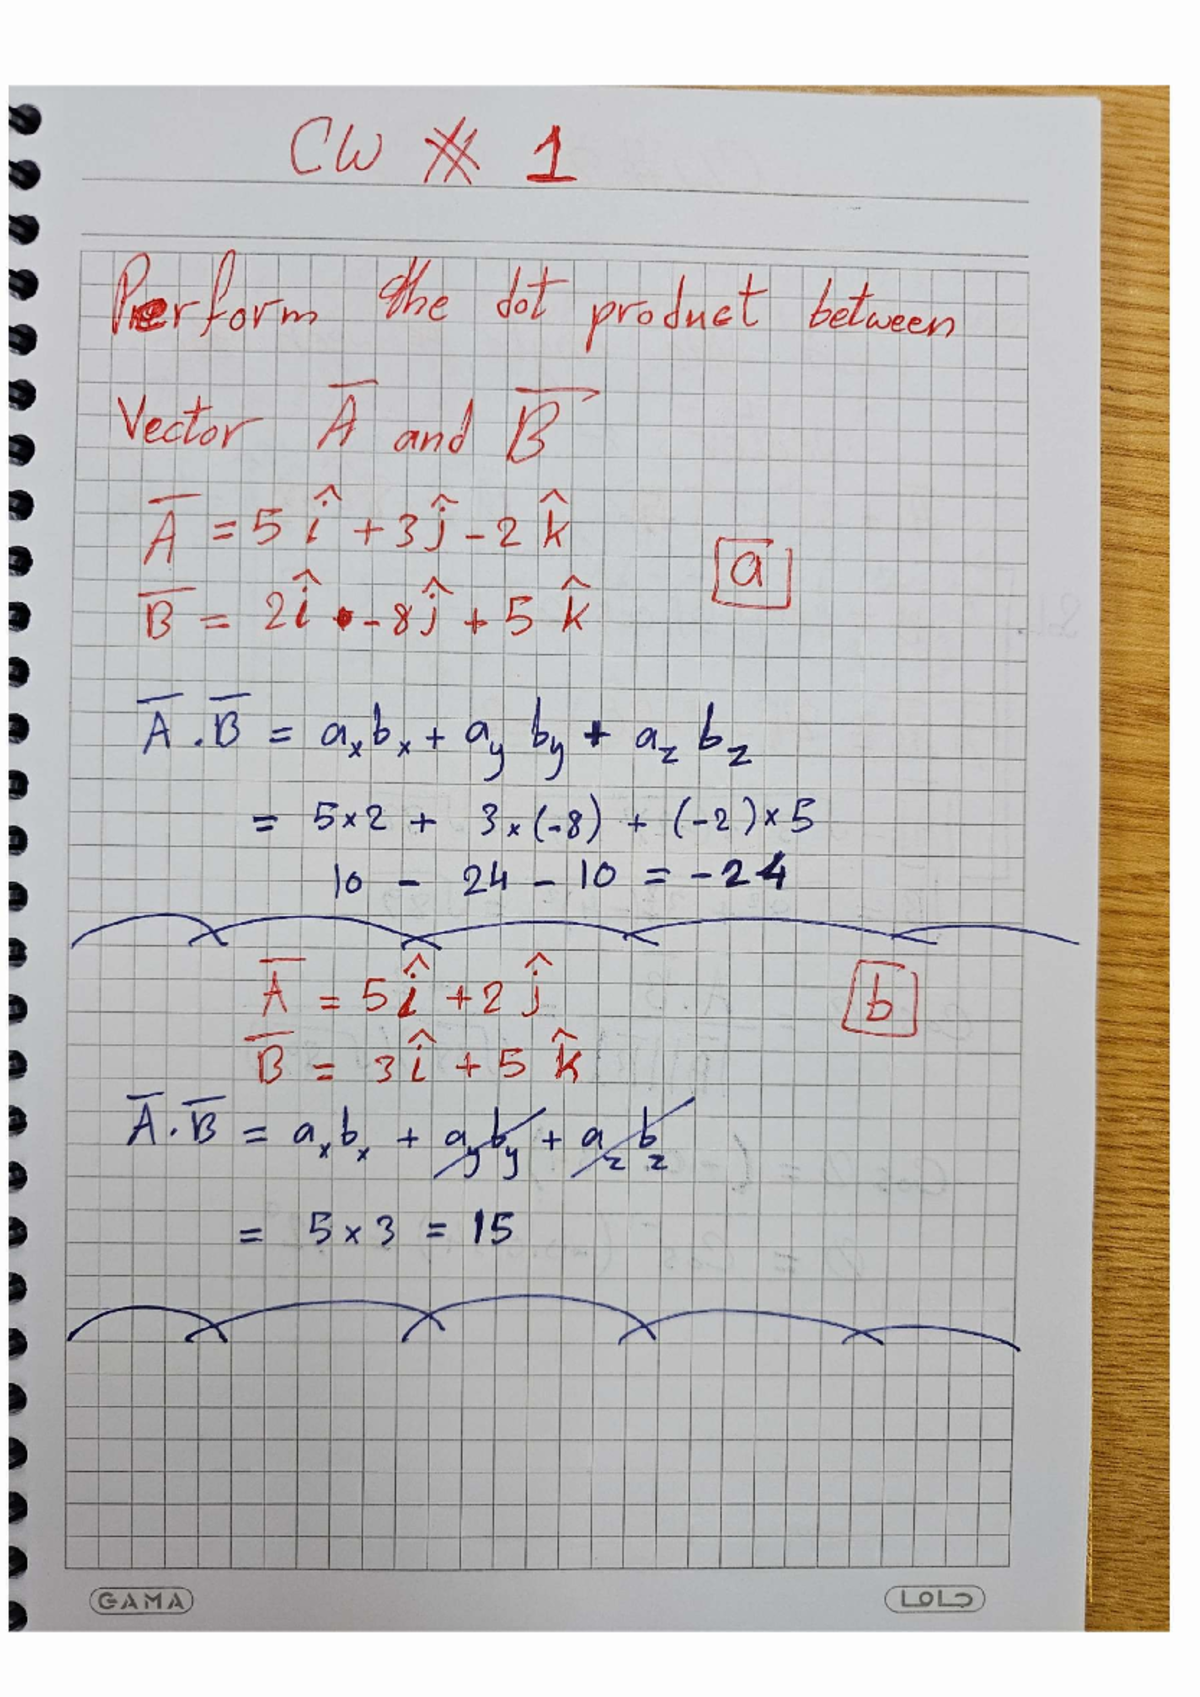 CW # 1
Perform the dot product between
Vector A̅ and B̅
A̅ = 5 î + 3 ĵ - 2 k̂
a
B̅ = 2 î - 8 ĵ + 5 k̂
A̅ . B̅ = aₓbₓ + a_y b_y + a_z b_z
= 5×2 + 3×(-8) + (-2)×5
10 - 24 - 10 = -24
A̅ = 5 î + 2 ĵ
b
B̅ = 3 î + 5 k̂
A̅ . B̅ = aₓbₓ + a_y b_y + a_z b_z
= 5 × 3 = 15
GAMA